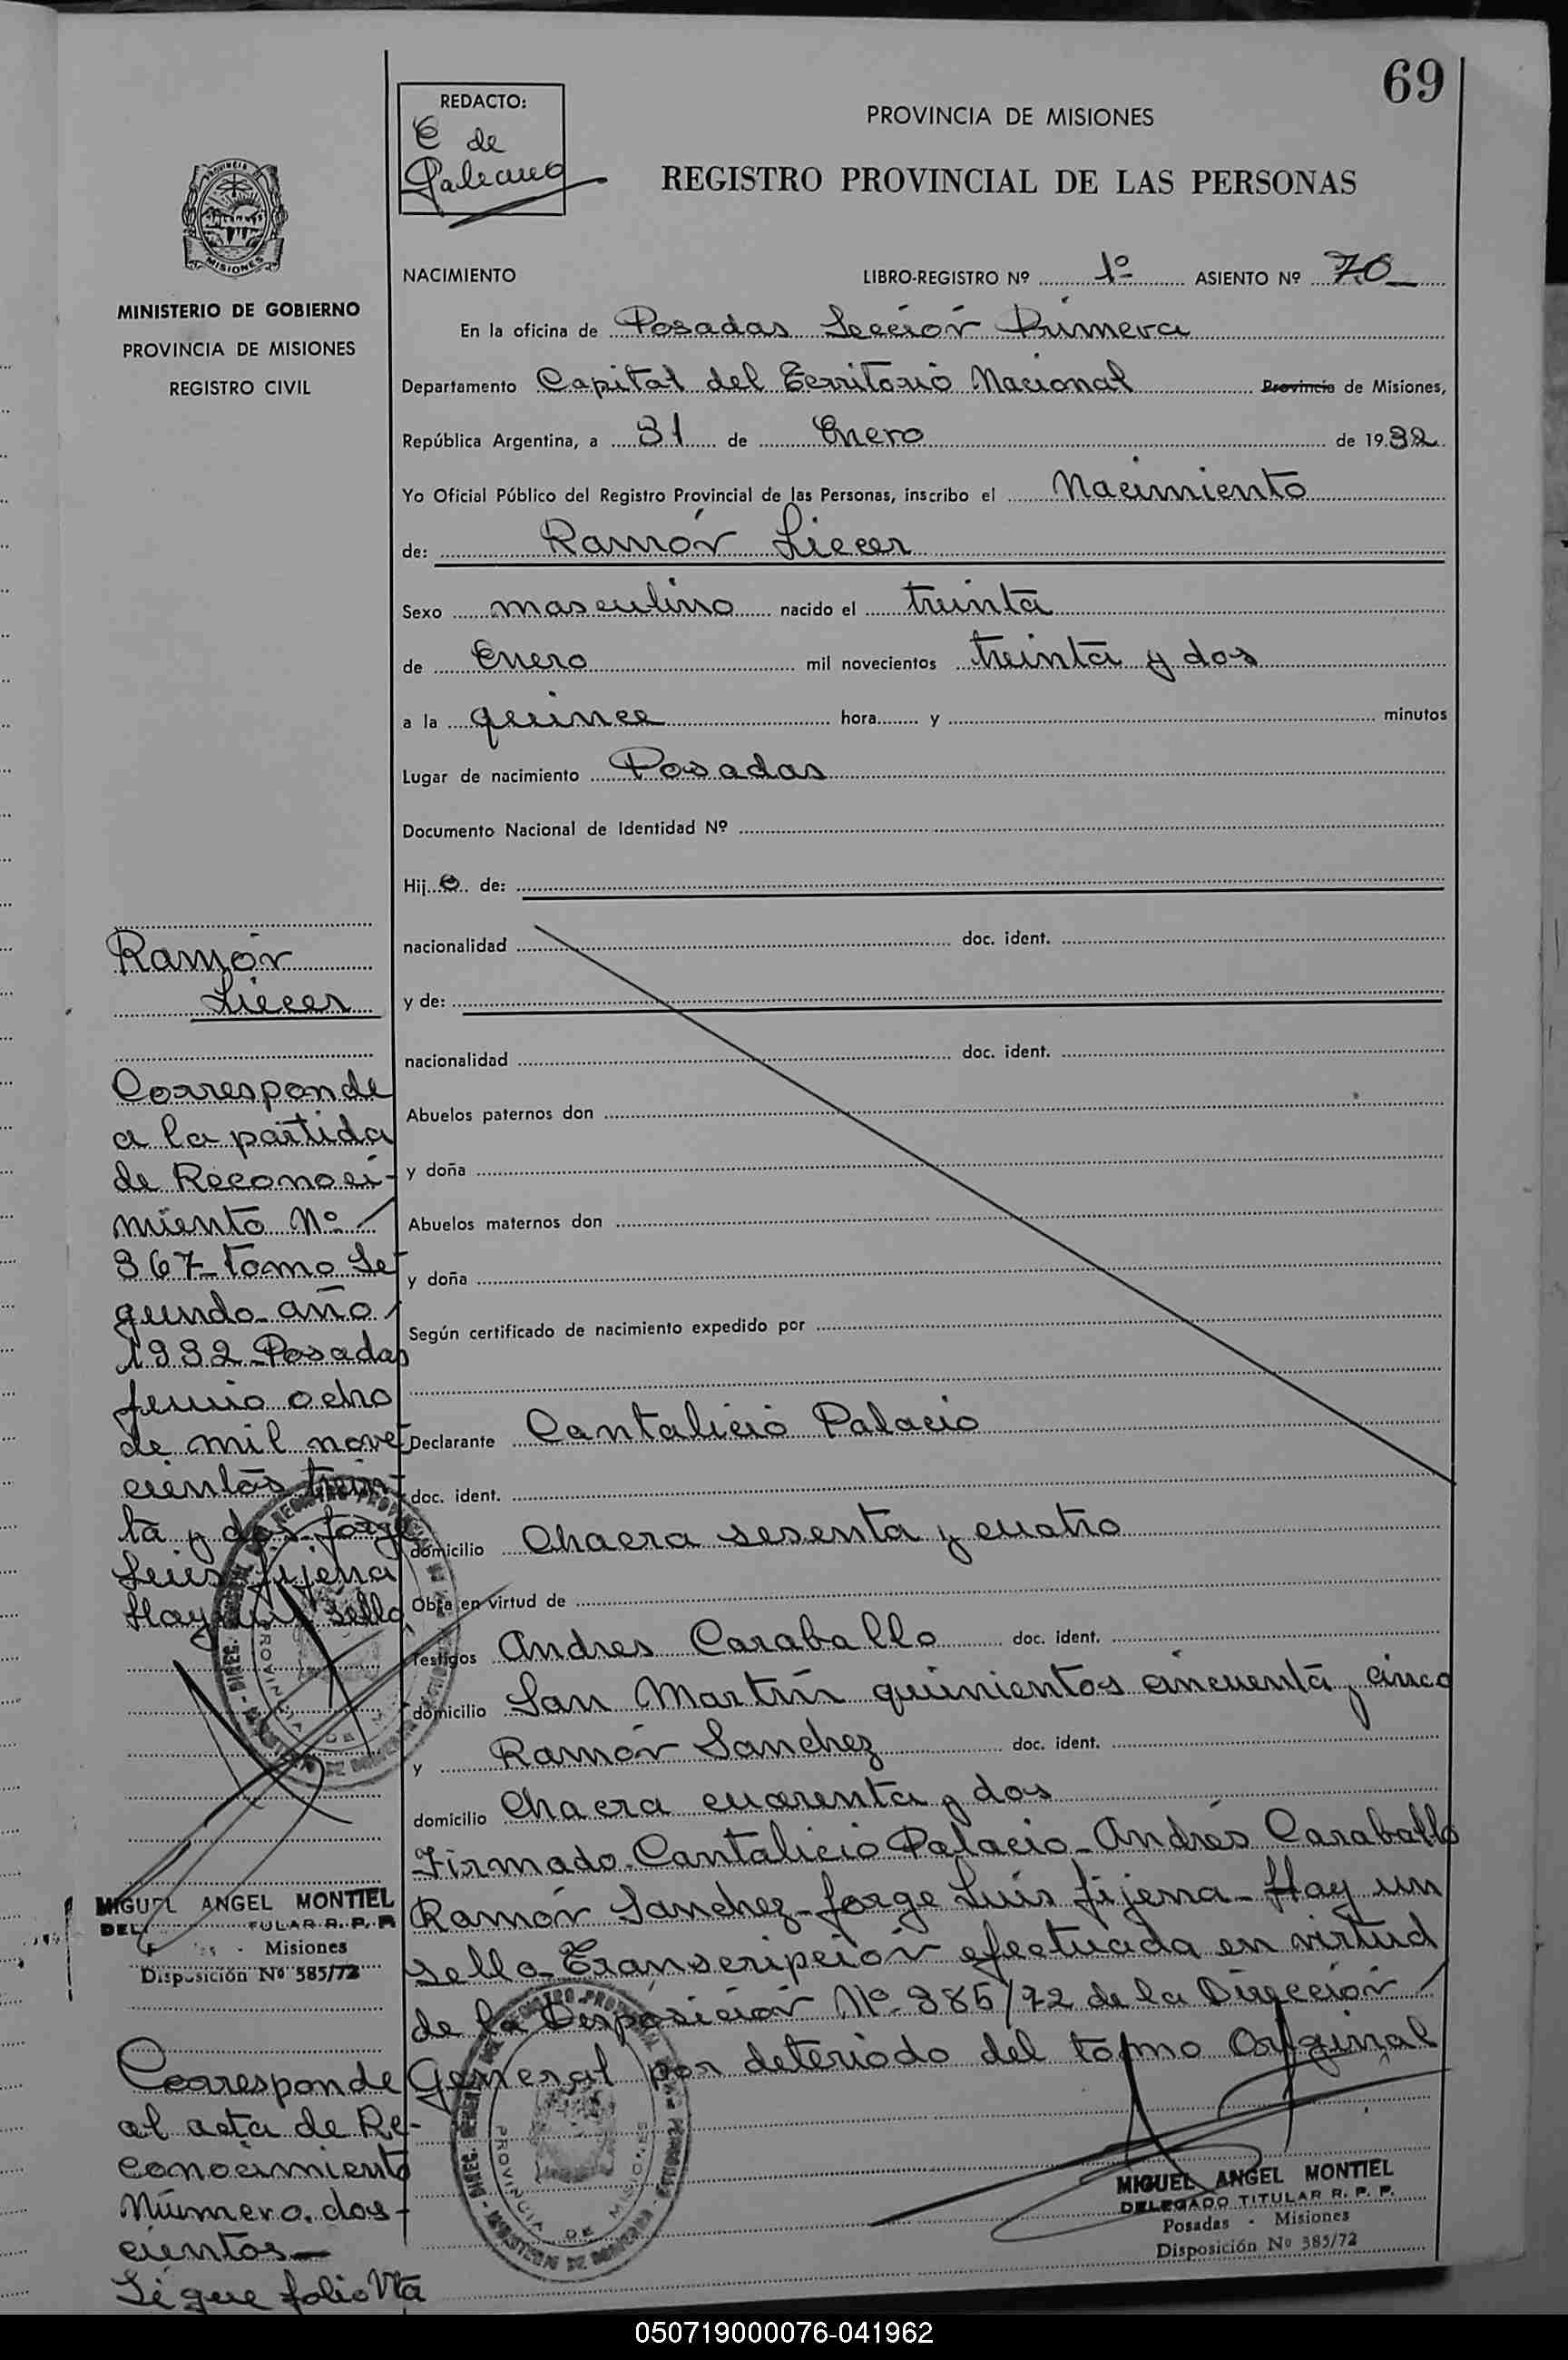 69
REDACTO:
C de
Galeano
PROVINCIA DE MISIONES
REGISTRO PROVINCIAL DE LAS PERSONAS
MISIONES
MINISTERIO DE GOBIERNO
PROVINCIA DE MISIONES
REGISTRO CIVIL
NACIMIENTO LIBRO-REGISTRO Nº 1º ASIENTO Nº 70
En la oficina de Posadas Sección Primera
Departamento Capital del Territorio Nacional Provincia de Misiones,
República Argentina, a 31 de Enero de 1932
Yo Oficial Público del Registro Provincial de las Personas, inscribo el Nacimiento
de: Ramón Liecer
Sexo masculino nacido el treinta
de Enero mil novecientos treinta y dos
a la quince hora y minutos
Lugar de nacimiento Posadas
Documento Nacional de Identidad Nº
Hijo de:
nacionalidad doc. ident.
y de:
nacionalidad doc. ident.
Abuelos paternos don
y doña
Abuelos maternos don
y doña
Según certificado de nacimiento expedido por
Declarante Cantalicio Palacio
doc. ident.
domicilio Chacra sesenta y cuatro
Obra en virtud de
Testigos Andres Caraballo doc. ident.
domicilio San Martín quinientos cincuenta y cinco
y Ramón Sanchez doc. ident.
domicilio Chacra cuarenta y dos
Firmado. Cantalicio Palacio - Andrés Caraballo
Ramón Sanchez - Jorge Luis Jijena - Hay un
sello - Transcripción efectuada en virtud
de la Disposición Nº 385/72 de la Dirección
General por deteriodo del tomo Original
MIGUEL ANGEL MONTIEL
DELEGADO TITULAR R. P. P.
Posadas - Misiones
Disposición Nº 385/72
Ramón
Liecer
Corresponde
a la partida
de Reconoci-
miento Nº
367 - tomo Se
gundo - año
1932 - Posadas
junio ocho
de mil nove
cientos trein-
ta y dos Jorge
Luis Jijena
Hay un sello
MIGUEL ANGEL MONTIEL
Misiones
Disposición Nº 385/72
Corresponde
al acta de Re-
conocimiento
Número dos-
cientos
Sigue folio Vta
PROVINCIA DE MISIONES
050719000076-041962